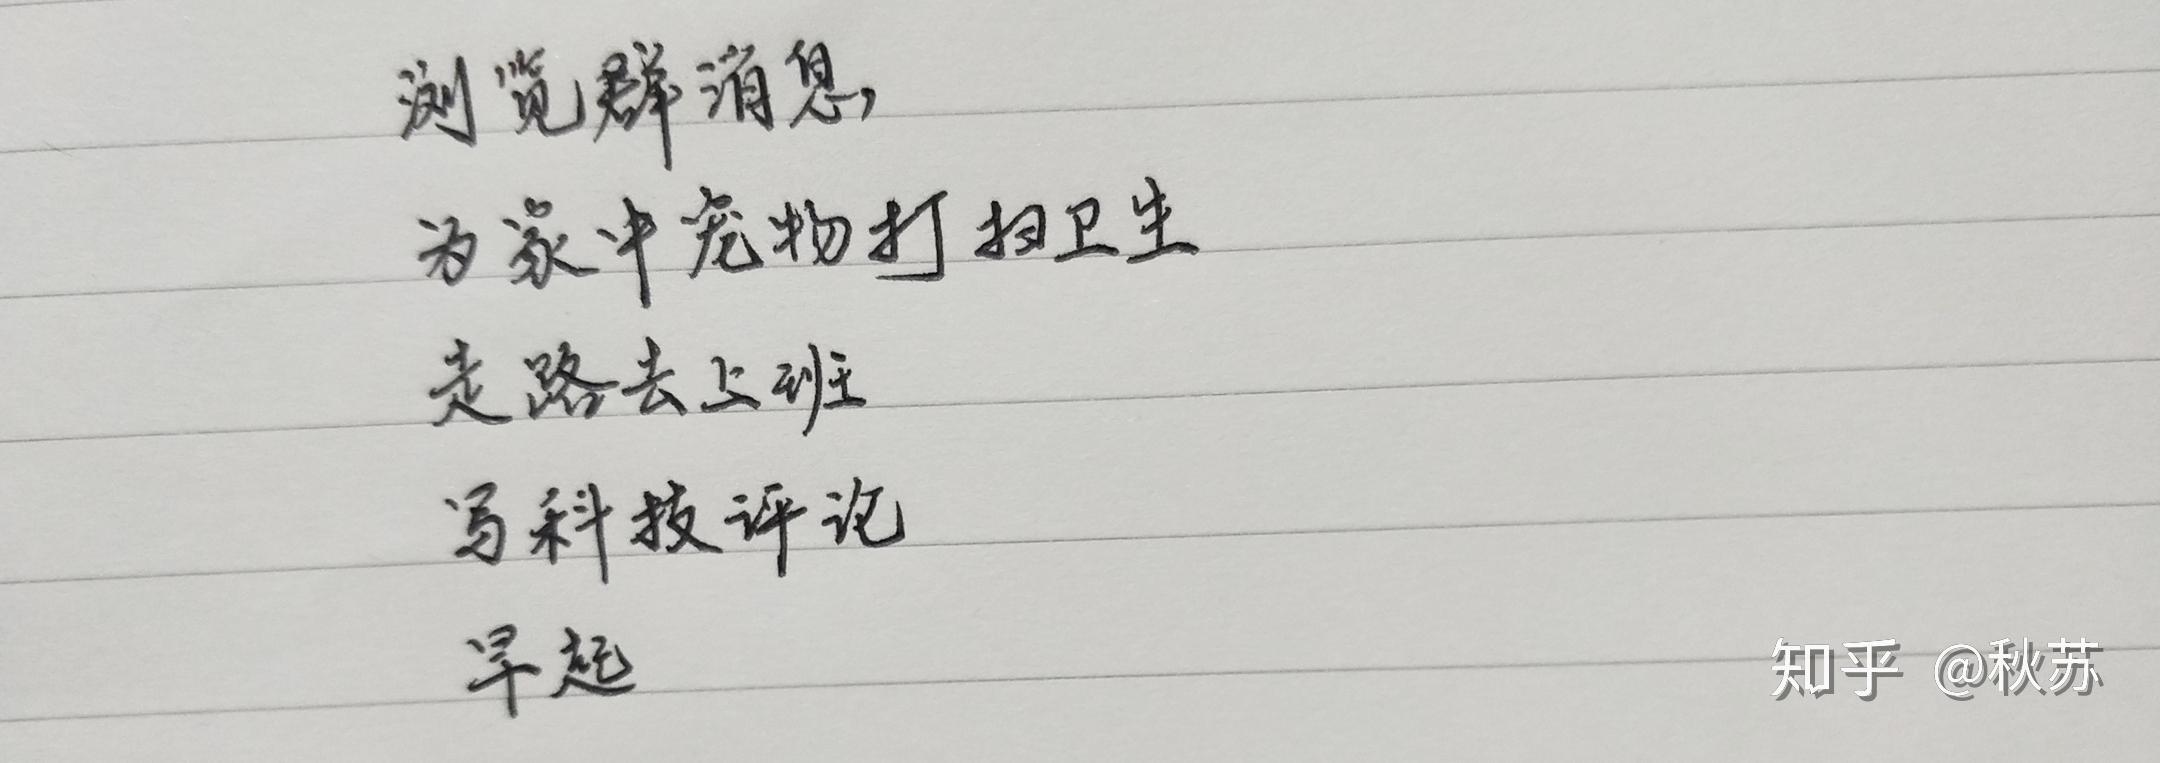 浏览群消息,
为家中宠物打扫卫生
走路去上班
写科技评论
早起
知乎 @秋苏